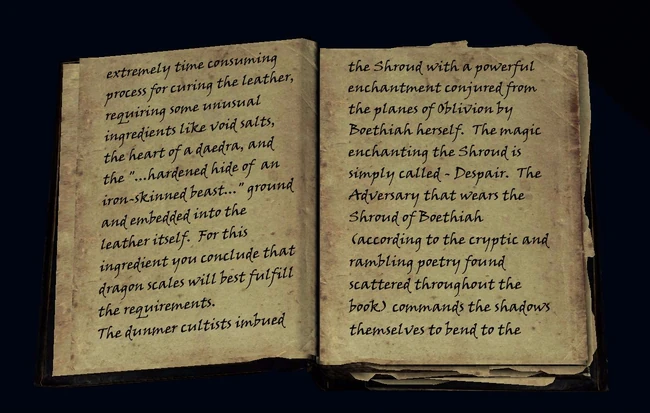 extremely time consuming
process for curing the leather,
requiring some unusual
ingredients like void salts,
the heart of a daedra, and
the "...hardened hide of an
iron-skinned beast..." ground
and embedded into the
leather itself. For this
ingredient you conclude that
dragon scales will best fulfill
the requirements.
The dunmer cultists imbued
the Shroud with a powerful
enchantment conjured from
the planes of Oblivion by
Boethiah herself. The magic
enchanting the Shroud is
simply called - Despair. The
Adversary that wears the
Shroud of Boethiah
(according to the cryptic and
rambling poetry found
scattered throughout the
book) commands the shadows
themselves to bend to the